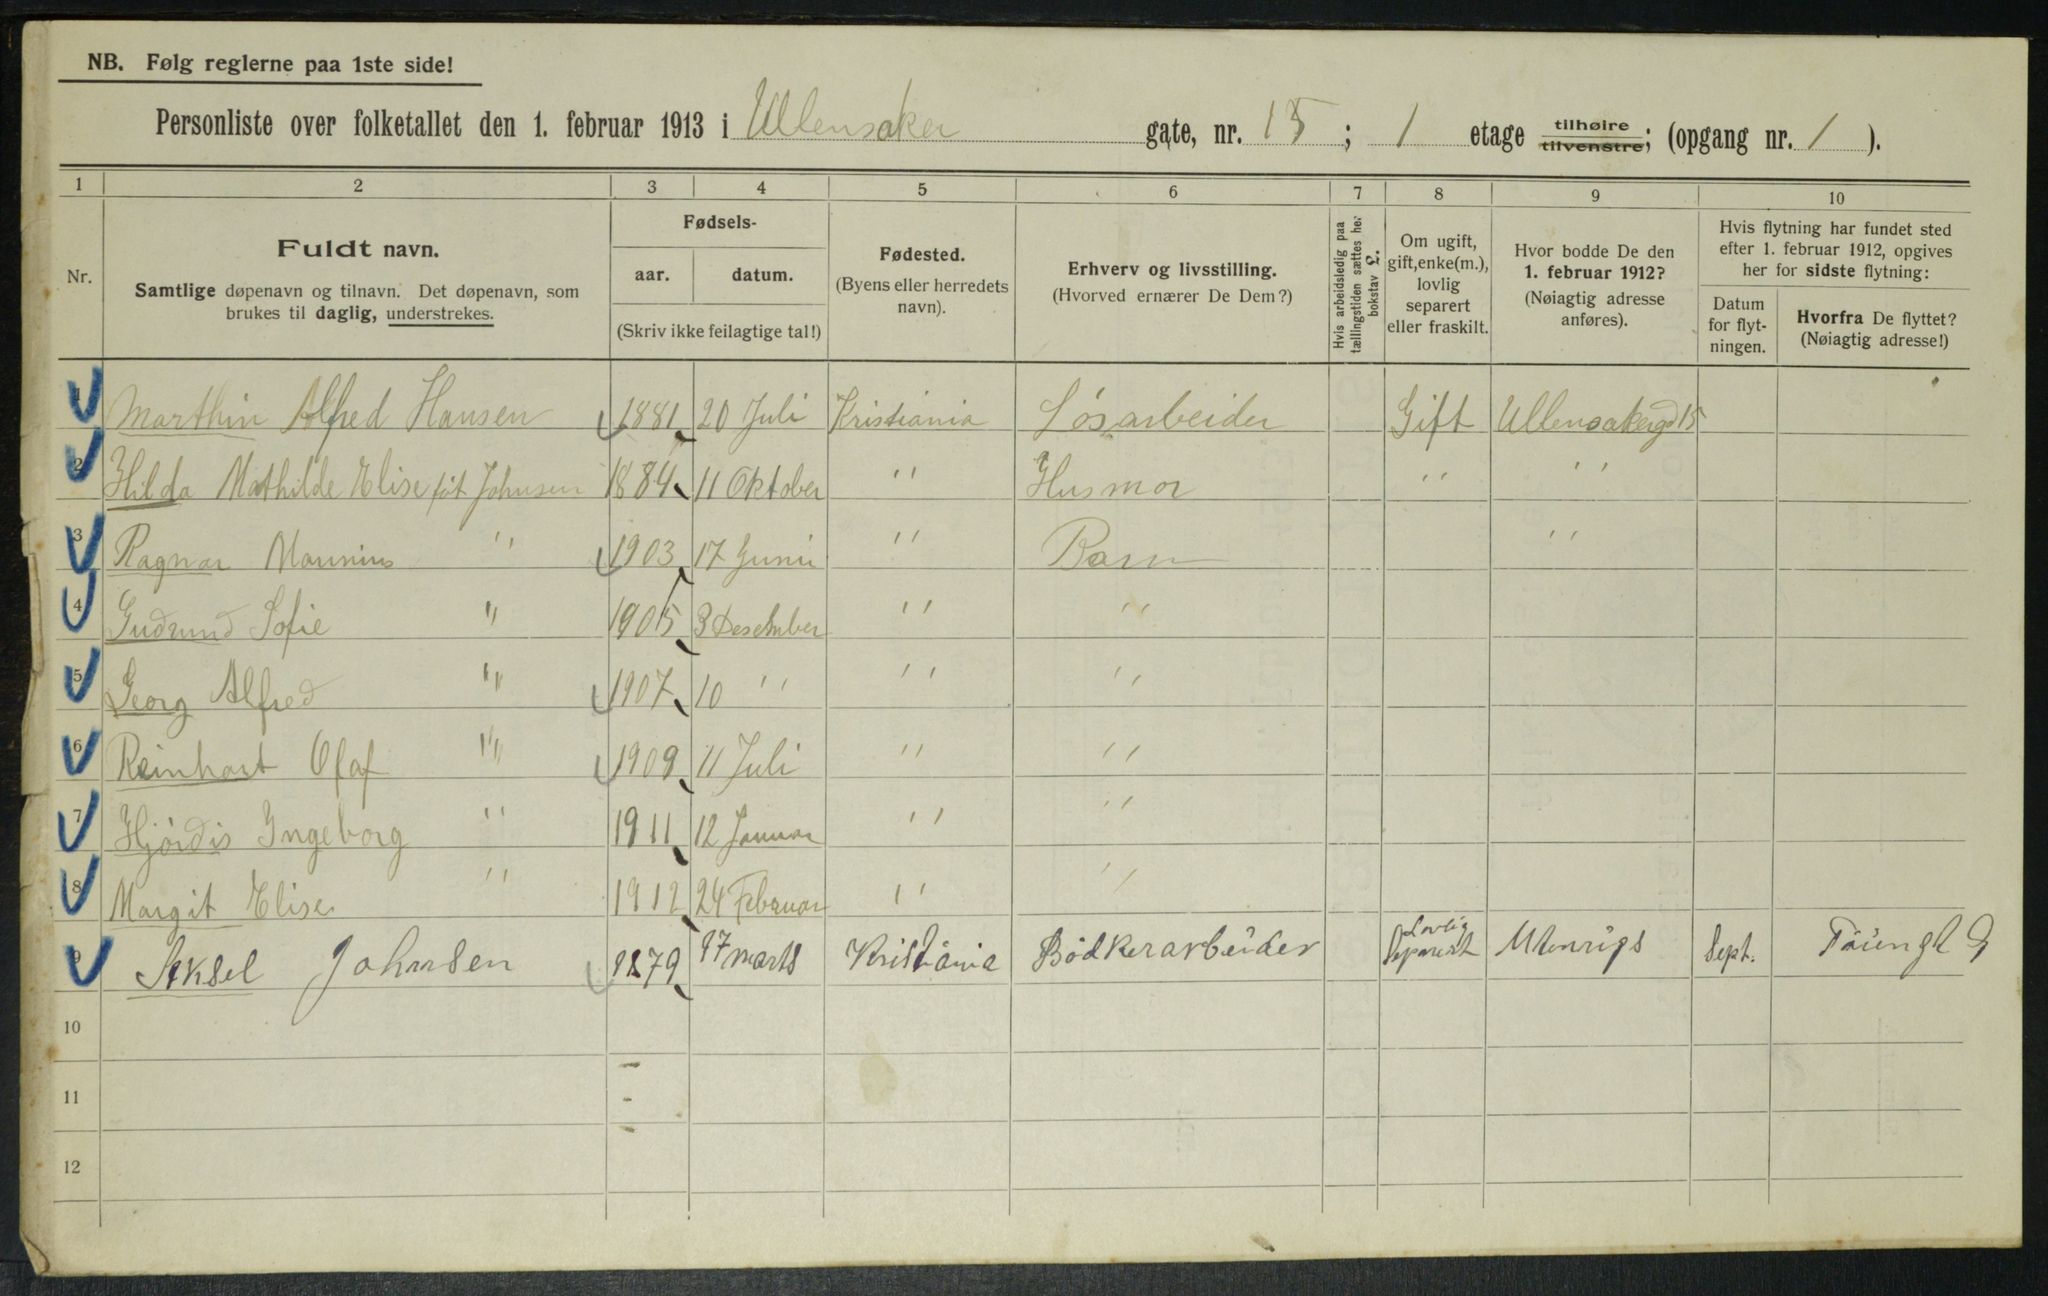 NB. Følg reglerne paa 1ste side!
Personliste over folketallet den 1. februar 1913 i Ullensaker gate, nr. 15 ; 1 etage tilhøire tilvenstre; (opgang nr. 1 ).
1 2 3 4 5 6 7 8 9 10
Nr.
Fuldt navn.
Samtlige døpenavn og tilnavn. Det døpenavn, som
brukes til daglig, understrekes.
Fødsels-
aar. datum.
(Skriv ikke feilagtige tal!)
Fødested.
(Byens eller herredets
navn).
Erhverv og livsstilling.
(Hvorved ernærer De Dem?)
Hvis arbeidsledig paa
tællingstiden sættes her
bokstav L.
Om ugift,
gift, enke(m.),
lovlig
separert
eller fraskilt.
Hvor bodde De den
1. februar 1912?
(Nøiagtig adresse
anføres).
Hvis flytning har fundet sted
efter 1. februar 1912, opgives
her for sidste flytning:
Datum
for flyt-
ningen.
Hvorfra De flyttet?
(Nøiagtig adresse!)
1 Marthin Alfred Hansen 1881 20 Juli Kristiania Løsarbeider Gift Ullensakergd 15
2 Hilda Mathilde Elise føt Johnsen 1884 11 Oktober " Husmor " "
3 Ragnar " 1903 17 Juni " Barn "
4 Gudrund Sofie " 1905 3 Desember " "
5 Georg Alfred " 1907 10 " " "
6 Reinhart Olaf " 1909 11 Juli " "
7 Hjørdis Ingeborg " 1911 12 Januar " "
8 Margit Elise " 1912 24 Februar " "
9 Aksel Johnsen 1879 17 marts Kristiania Bødkerarbeider Lovlig Seprert Utenrigs Sept.
10
11
12